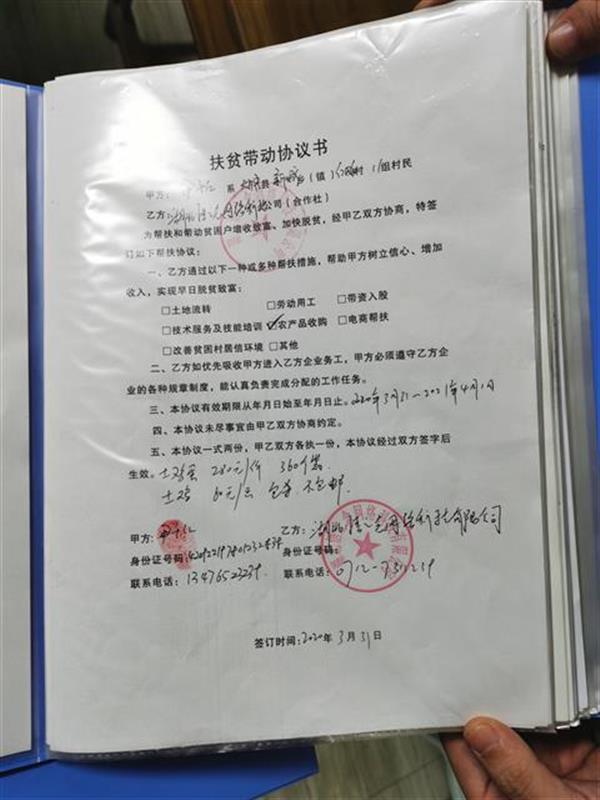 扶贫带动协议书
甲方： 系 县 新城乡（镇） 村 11组村民
乙方：湖北 网络科技公司（合作社）
为帮扶和带动贫困户增收致富、加快脱贫，经甲乙双方协商，特签
订如下帮扶协议：
一、乙方通过以下一种或多种帮扶措施，帮助甲方树立信心、增加
收入，实现早日脱贫致富：
□土地流转 □劳动用工 □带资入股
□技术服务及技能培训 ☑农产品收购 □电商帮扶
□改善贫困村居信环境 □其他
二、乙方如优先吸收甲方进入乙方企业务工，甲方必须遵守乙方企
业的各种规章制度，能认真负责完成分配的工作任务。
三、本协议有效期限从年月日始至年月日止。2020年3月31-2021年4月1日
四、本协议未尽事宜由甲乙双方协商约定。
五、本协议一式两份，甲乙双方各执一份，本协议经过双方签字后
生效。土鸡蛋 280元/件 360个装
土鸡 60元/只 包杀 不包邮
甲方： 乙方：湖北 网络科技有限公司
身份证号码: 身份证号码:
联系电话：13476523239 联系电话：0712-
签订时间:2020年3月31日